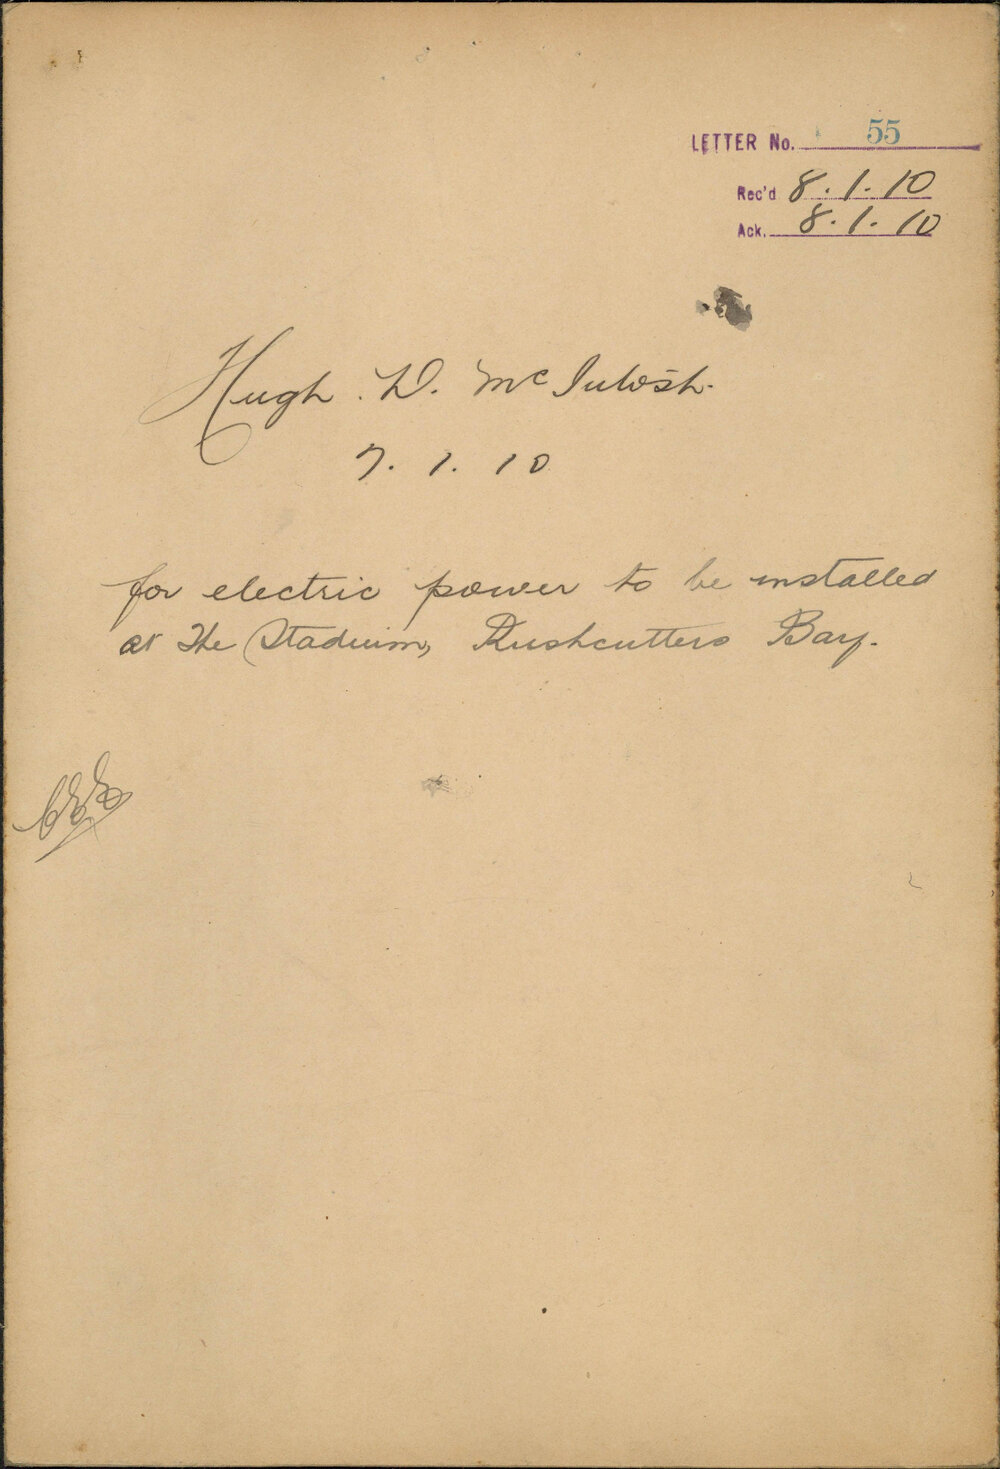 LETTER No. 55
Rec'd 8.1.10
Ack. 8.1.10
Hugh. D. Mc Intosh.
7. 1. 10
for electric power to be installed
at The Stadium, Rushcutters Bay.